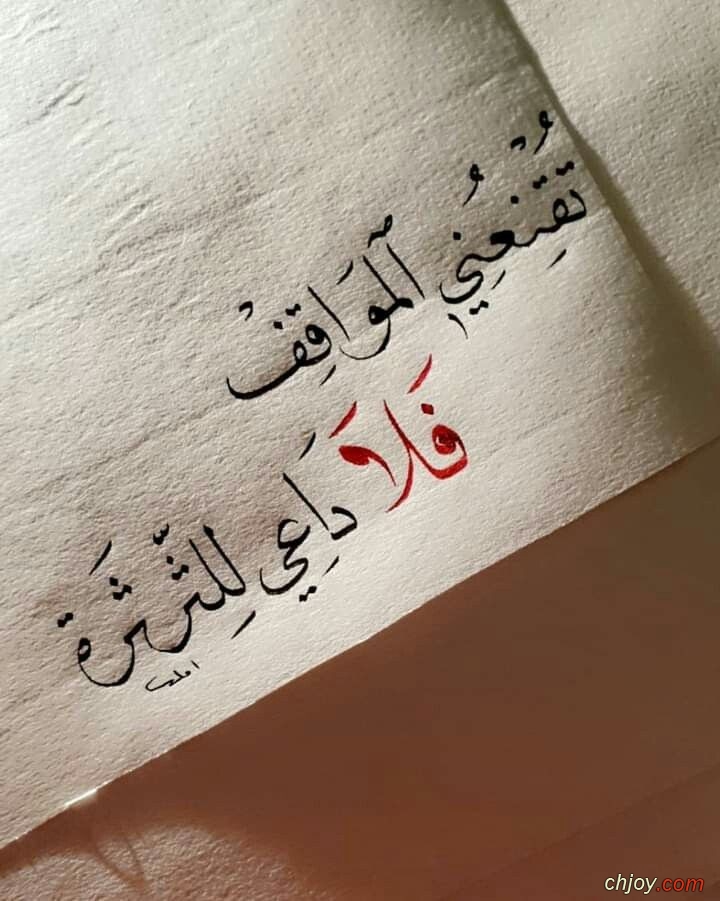 تُقْنِعُنِي ٱلمَوَاقِفْ
فَلَا دَاعِي لِلثَّرثَرَة
chjoy.com